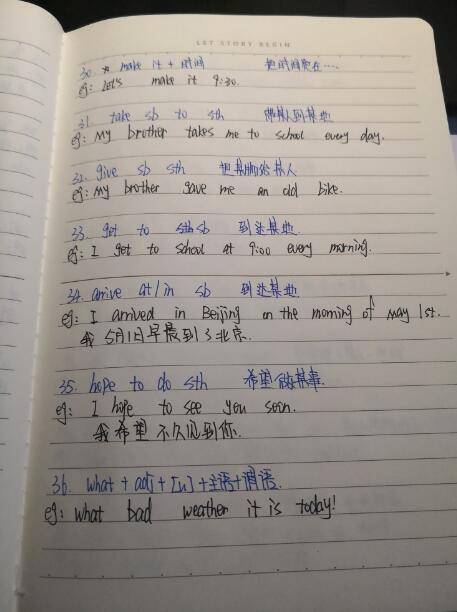 LET STORY BEGIN
30. * make it + 时间 把时间定在……
eg: Let's make it 9:30.
31. take sb to sth 带某人到某地
eg: My brother takes me to school every day.
32. give sb sth 把某物给某人
eg: My brother gave me an old bike.
33. get to sth sb 到达某地
eg: I get to school at 9:00 every morning.
34. arrive at/in sb 到达某地
eg: I arrived in Beijing on the morning of May 1st.
我5月1日早晨到了北京.
35. hope to do sth 希望做某事
eg: I hope to see you soon.
我希望不久见到你.
36. what + adj + [u] + 主语 + 谓语.
eg: what bad weather it is today!